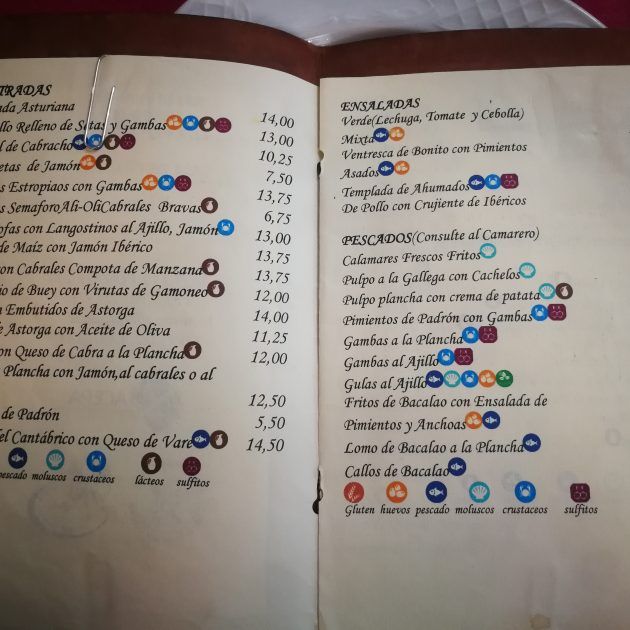 TRADAS
ada Asturiana 14,00
llo Relleno de Setas y Gambas 13,00
l de Cabracho 10,25
etas de Jamón 7,50
s Estropiaos con Gambas 13,75
s Semaforo Ali-Oli Cabrales Bravas 6,75
ofas con Langostinos al Ajillo, Jamón 13,00
de Maíz con Jamón Ibérico 13,75
con Cabrales Compota de Manzana 13,75
io de Buey con Virutas de Gamoneo 12,00
n Embutidos de Astorga 14,00
e Astorga con Aceite de Oliva 11,25
on Queso de Cabra a la Plancha 12,00
Plancha con Jamón, al cabrales o al
12,50
de Padrón 5,50
el Cantábrico con Queso de Vare 14,50
pescado moluscos crustaceos lácteos sulfitos
ENSALADAS
Verde(Lechuga, Tomate y Cebolla)
Mixta
Ventresca de Bonito con Pimientos
Asados
Templada de Ahumados
De Pollo con Crujiente de Ibéricos
PESCADOS(Consulte al Camarero)
Calamares Frescos Fritos
Pulpo a la Gallega con Cachelos
Pulpo plancha con crema de patata
Pimientos de Padrón con Gambas
Gambas a la Plancha
Gambas al Ajillo
Gulas al Ajillo
Fritos de Bacalao con Ensalada de
Pimientos y Anchoas
Lomo de Bacalao a la Plancha
Callos de Bacalao
Gluten huevos pescado moluscos crustaceos sulfitos